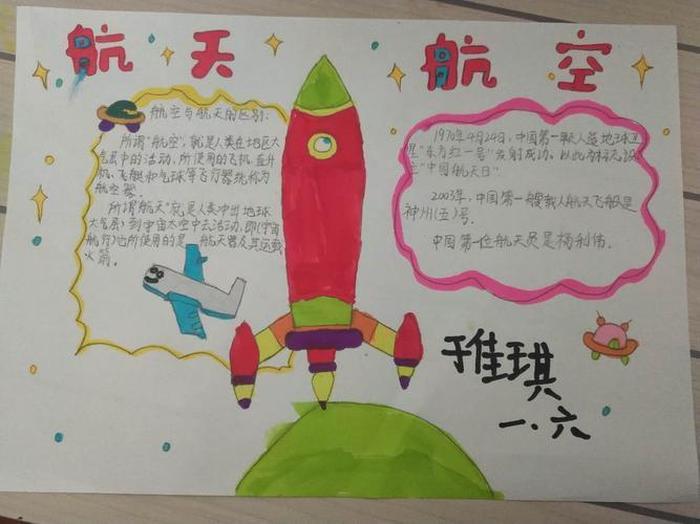 航天 航空
航空与航天的区别:
所谓"航空",就是人类在地区大
气层中的活动,所使用的飞机、直升
机、飞艇和气球等飞行器统称为
航空器。
所谓航天"就是人类冲出地球
大气层,到宇宙太空中去活动,即(宇宙
航行)它所使用的是 航天器及其运载
火箭。
1970年4月24日,中国第一颗人造地球卫
星"东方红一号"发射成功,以此
"中国航天日"
2003年,中国第一艘载人航天飞船是
神州(五)号。
中国第一位航天员是杨利伟.
于佳琪
一.六